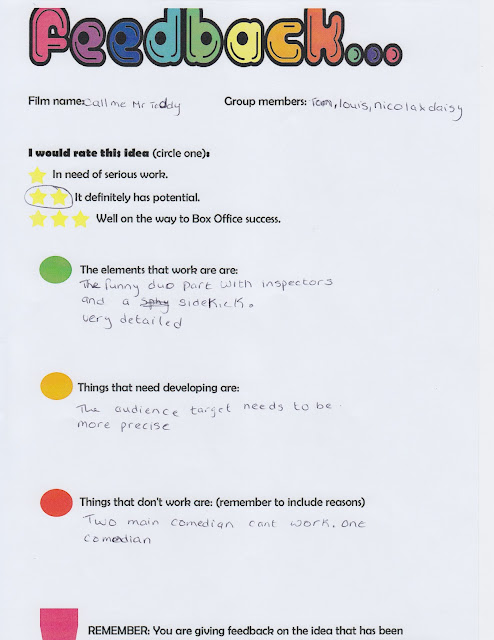 Feedback...
Film name: Call me Mr Teddy Group members: Tom, louis, nicola & daisy
I would rate this idea (circle one):
In need of serious work.
It definitely has potential.
Well on the way to Box Office success.
The elements that work are are:
The funny duo part with inspectors
and a sidekick.
very detailed
Things that need developing are:
The audience target needs to be
more precise
Things that don't work are: (remember to include reasons)
Two main comedian cant work. one
comedian
REMEMBER: You are giving feedback on the idea that has been